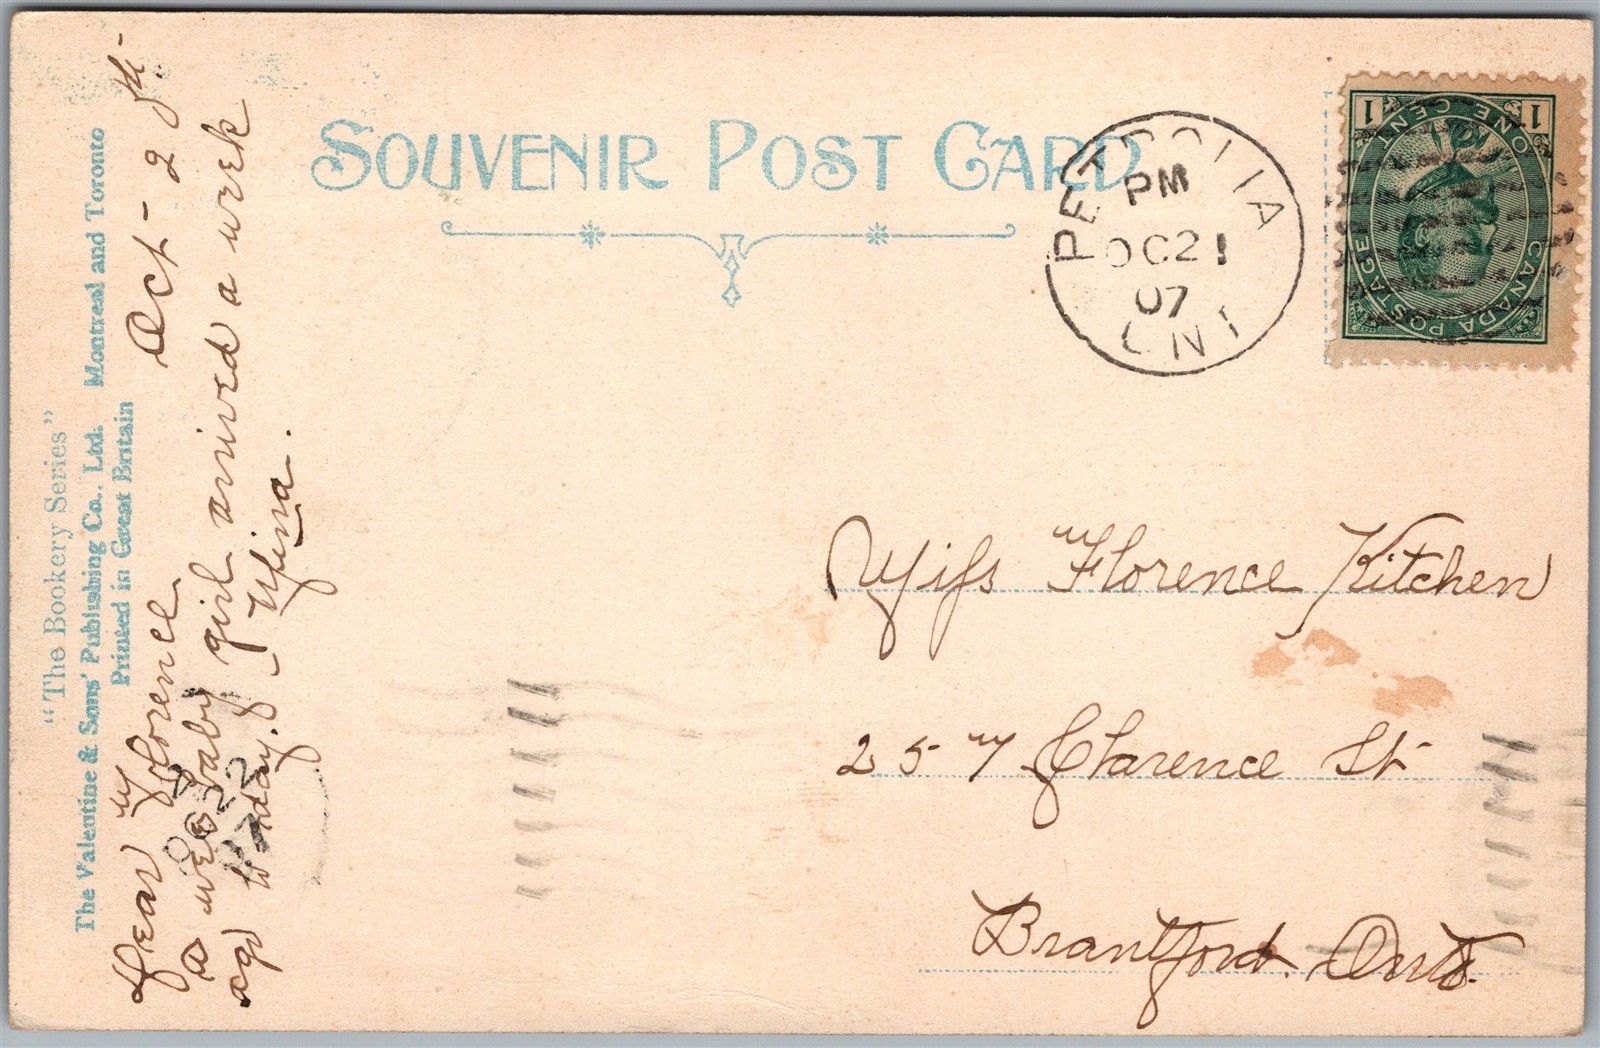 SOUVENIR POST CARD
"The Bookery Series"
The Valentine & Sons' Publishing Co., Ltd. Montreal and Toronto
Printed in Great Britain
PETROLIA
PM
OC 21
07
ONT
1 1
ONE CENT
CANADA POSTAGE
Oct - 2 
Dear Florence
a wee baby girl arrived a week
ago today. -
Miss Florence Kitchen
257 Clarence St
Brantford. Ont.